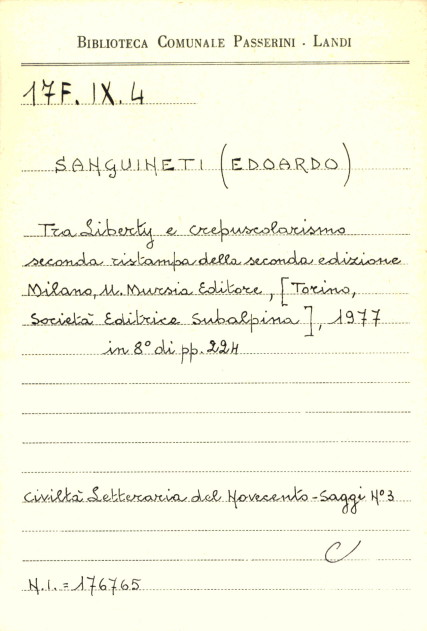 BIBLIOTECA COMUNALE PASSERINI - LANDI
17F. IX. 4
SANGUINETI (EDOARDO)
Tra Liberty e crepuscolarismo
seconda ristampa della seconda edizione
Milano, U. Mursia Editore, [Torino,
Società Editrice Subalpina], 1977
in 8° di pp. 224
Civiltà Letteraria del Novecento - Saggi N° 3
C
N.I. = 176765